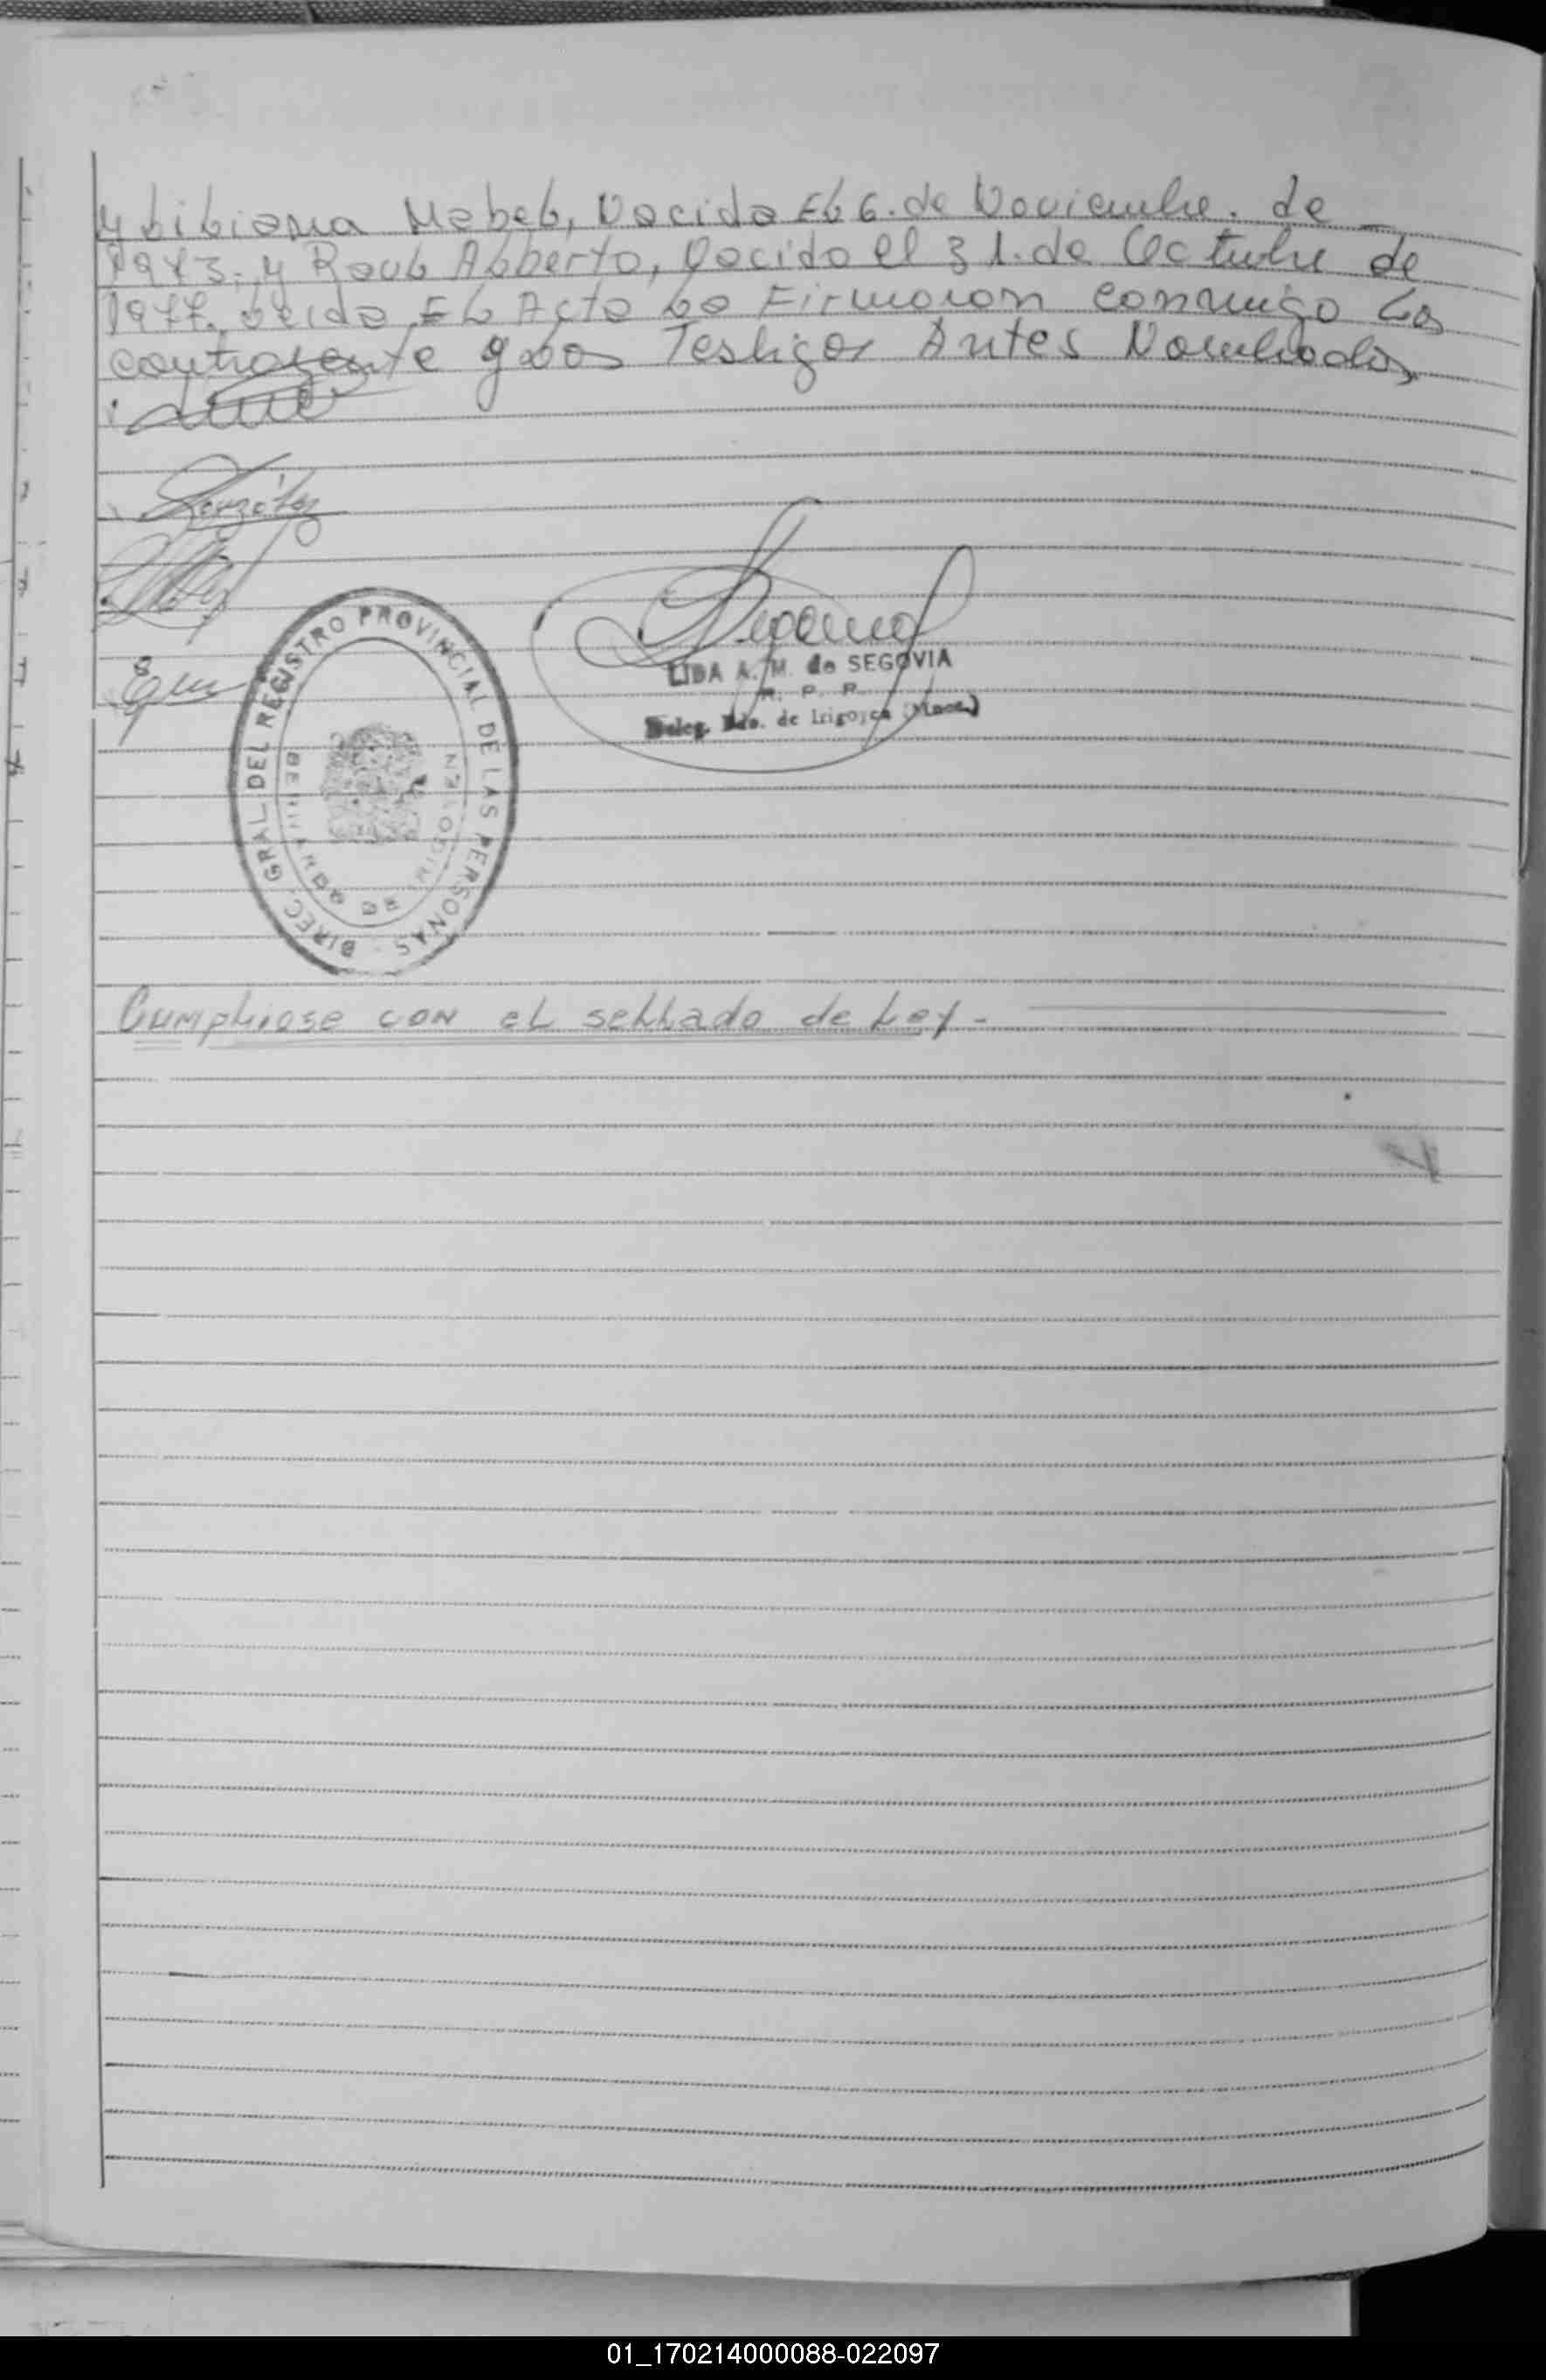 y Bibiana Mabel, Nacida El 6. de Noviembre. de
1973. y Raul Alberto, Nacido el 31. de Octubre de
1977. Leida El Acta La Firmaron conmigo Los
contrayente y Los Testigos Antes Nombrados
González
DIREC. GRAL. DEL REGISTRO PROVINCIAL DE LAS PERSONAS -
LIDA A. M. de SEGOVIA
R. P. P.
Deleg. Bdo. de Irigoyen (Mnes.)
Cumpliose con el sellado de Ley.-
01_170214000088-022097